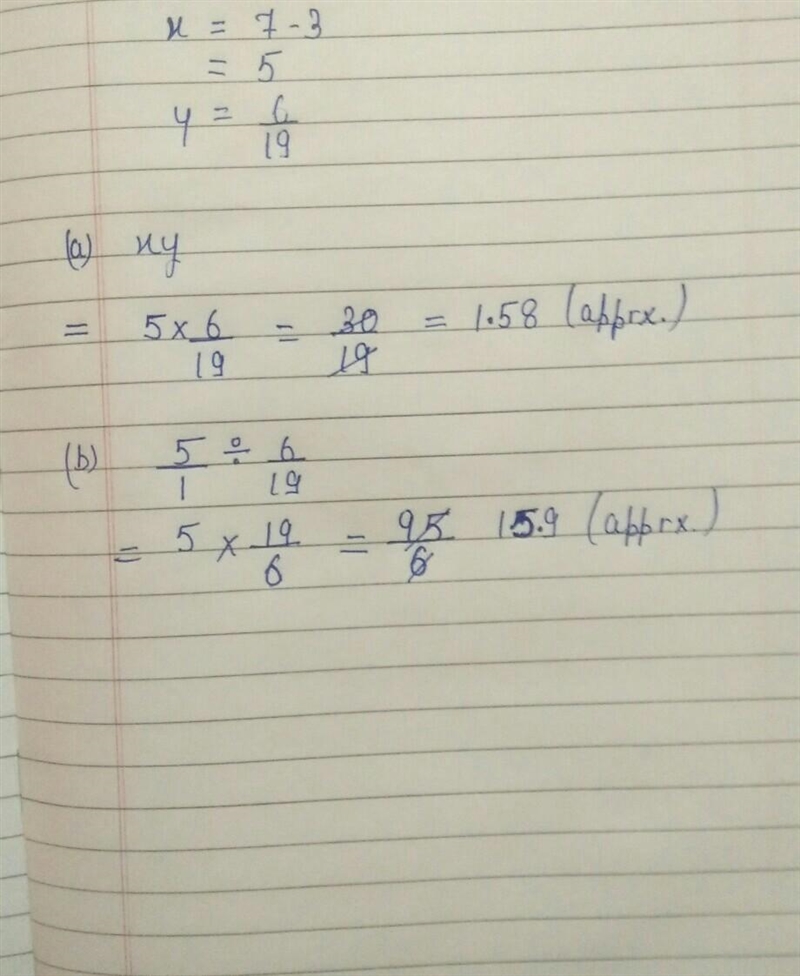 x = 7 - 3
= 5
y = 6/19
(a) xy
= 5 × 6/19 = 30/19 = 1.58 (apprx.)
(b) 5/1 ÷ 6/19
= 5 × 19/6 = 95/6 15.9 (apprx.)